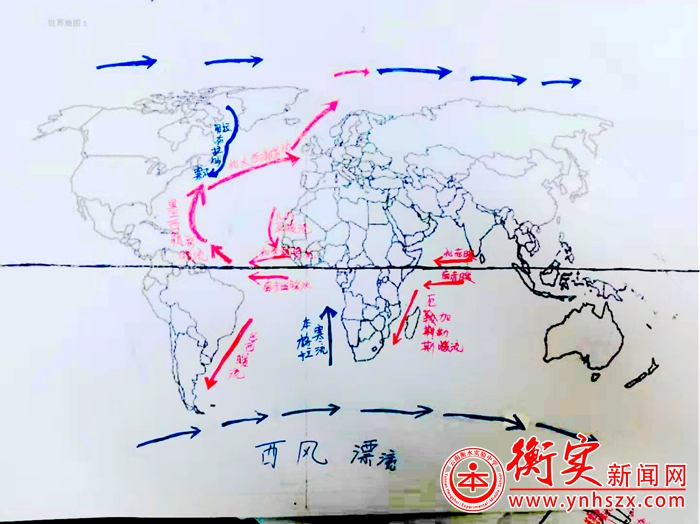 世界地图 1
2
拉布拉多寒流
北大西洋暖流
墨西哥湾暖流
北赤道暖流
南赤道暖流
北赤暖
南赤暖
巴西暖流
本格拉寒流
西风 漂流
衡实
新闻网
云南衡水实验中学
www.ynhszx.com